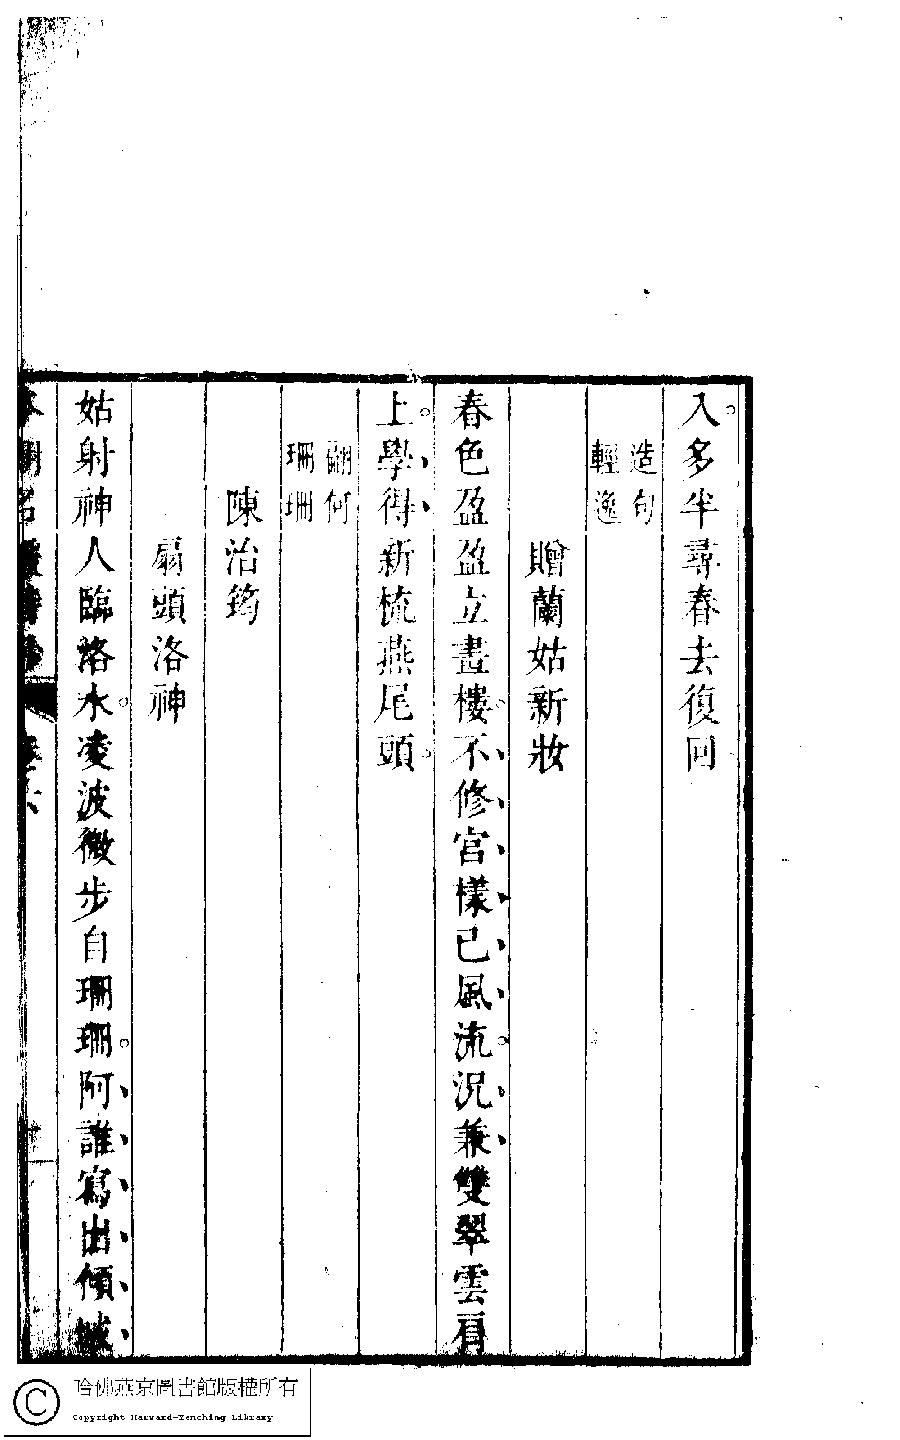 入多半尋春去復回
造句
輕逸
贈蘭姑新妝
春色盈盈立畫樓不修宮樣已風流況兼雙翠雲肩
上學得新梳燕尾頭
翩何
珊珊
陳治筠
扇頭洛神
姑射神人臨洛水凌波微步自珊珊阿誰寫出傾城
哈佛燕京圖書館版權所有
Copyright Harvard-Yenching Library